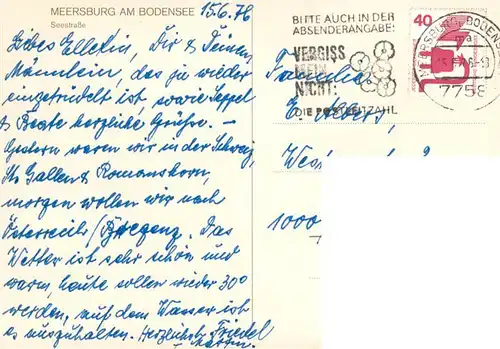 MEERSBURG AM BODENSEE
Seestraße
15.6.76
Liebes Ellekin, Dir & Deinem
Männlein, das ja wieder
eingetrudelt ist, sowie Seppel
& Beate herzliche Grüße. -
Gestern waren wir in der Schweiz,
St. Gallen & Romanshorn,
morgen wollen wir nach
Österreich/Bregenz. Das
Wetter ist sehr schön und
warm, heute sollen wieder 30°
werden, auf dem Wasser ist
es auszuhalten. Herzlichst Friedel
BITTE AUCH IN DER
ABSENDERANGABE:
VERGISS
MEIN
NICHT:
DIE POSTLEITZAHL
MEERSBURG, BODENSEE
7758
40
Familie
E.
1000